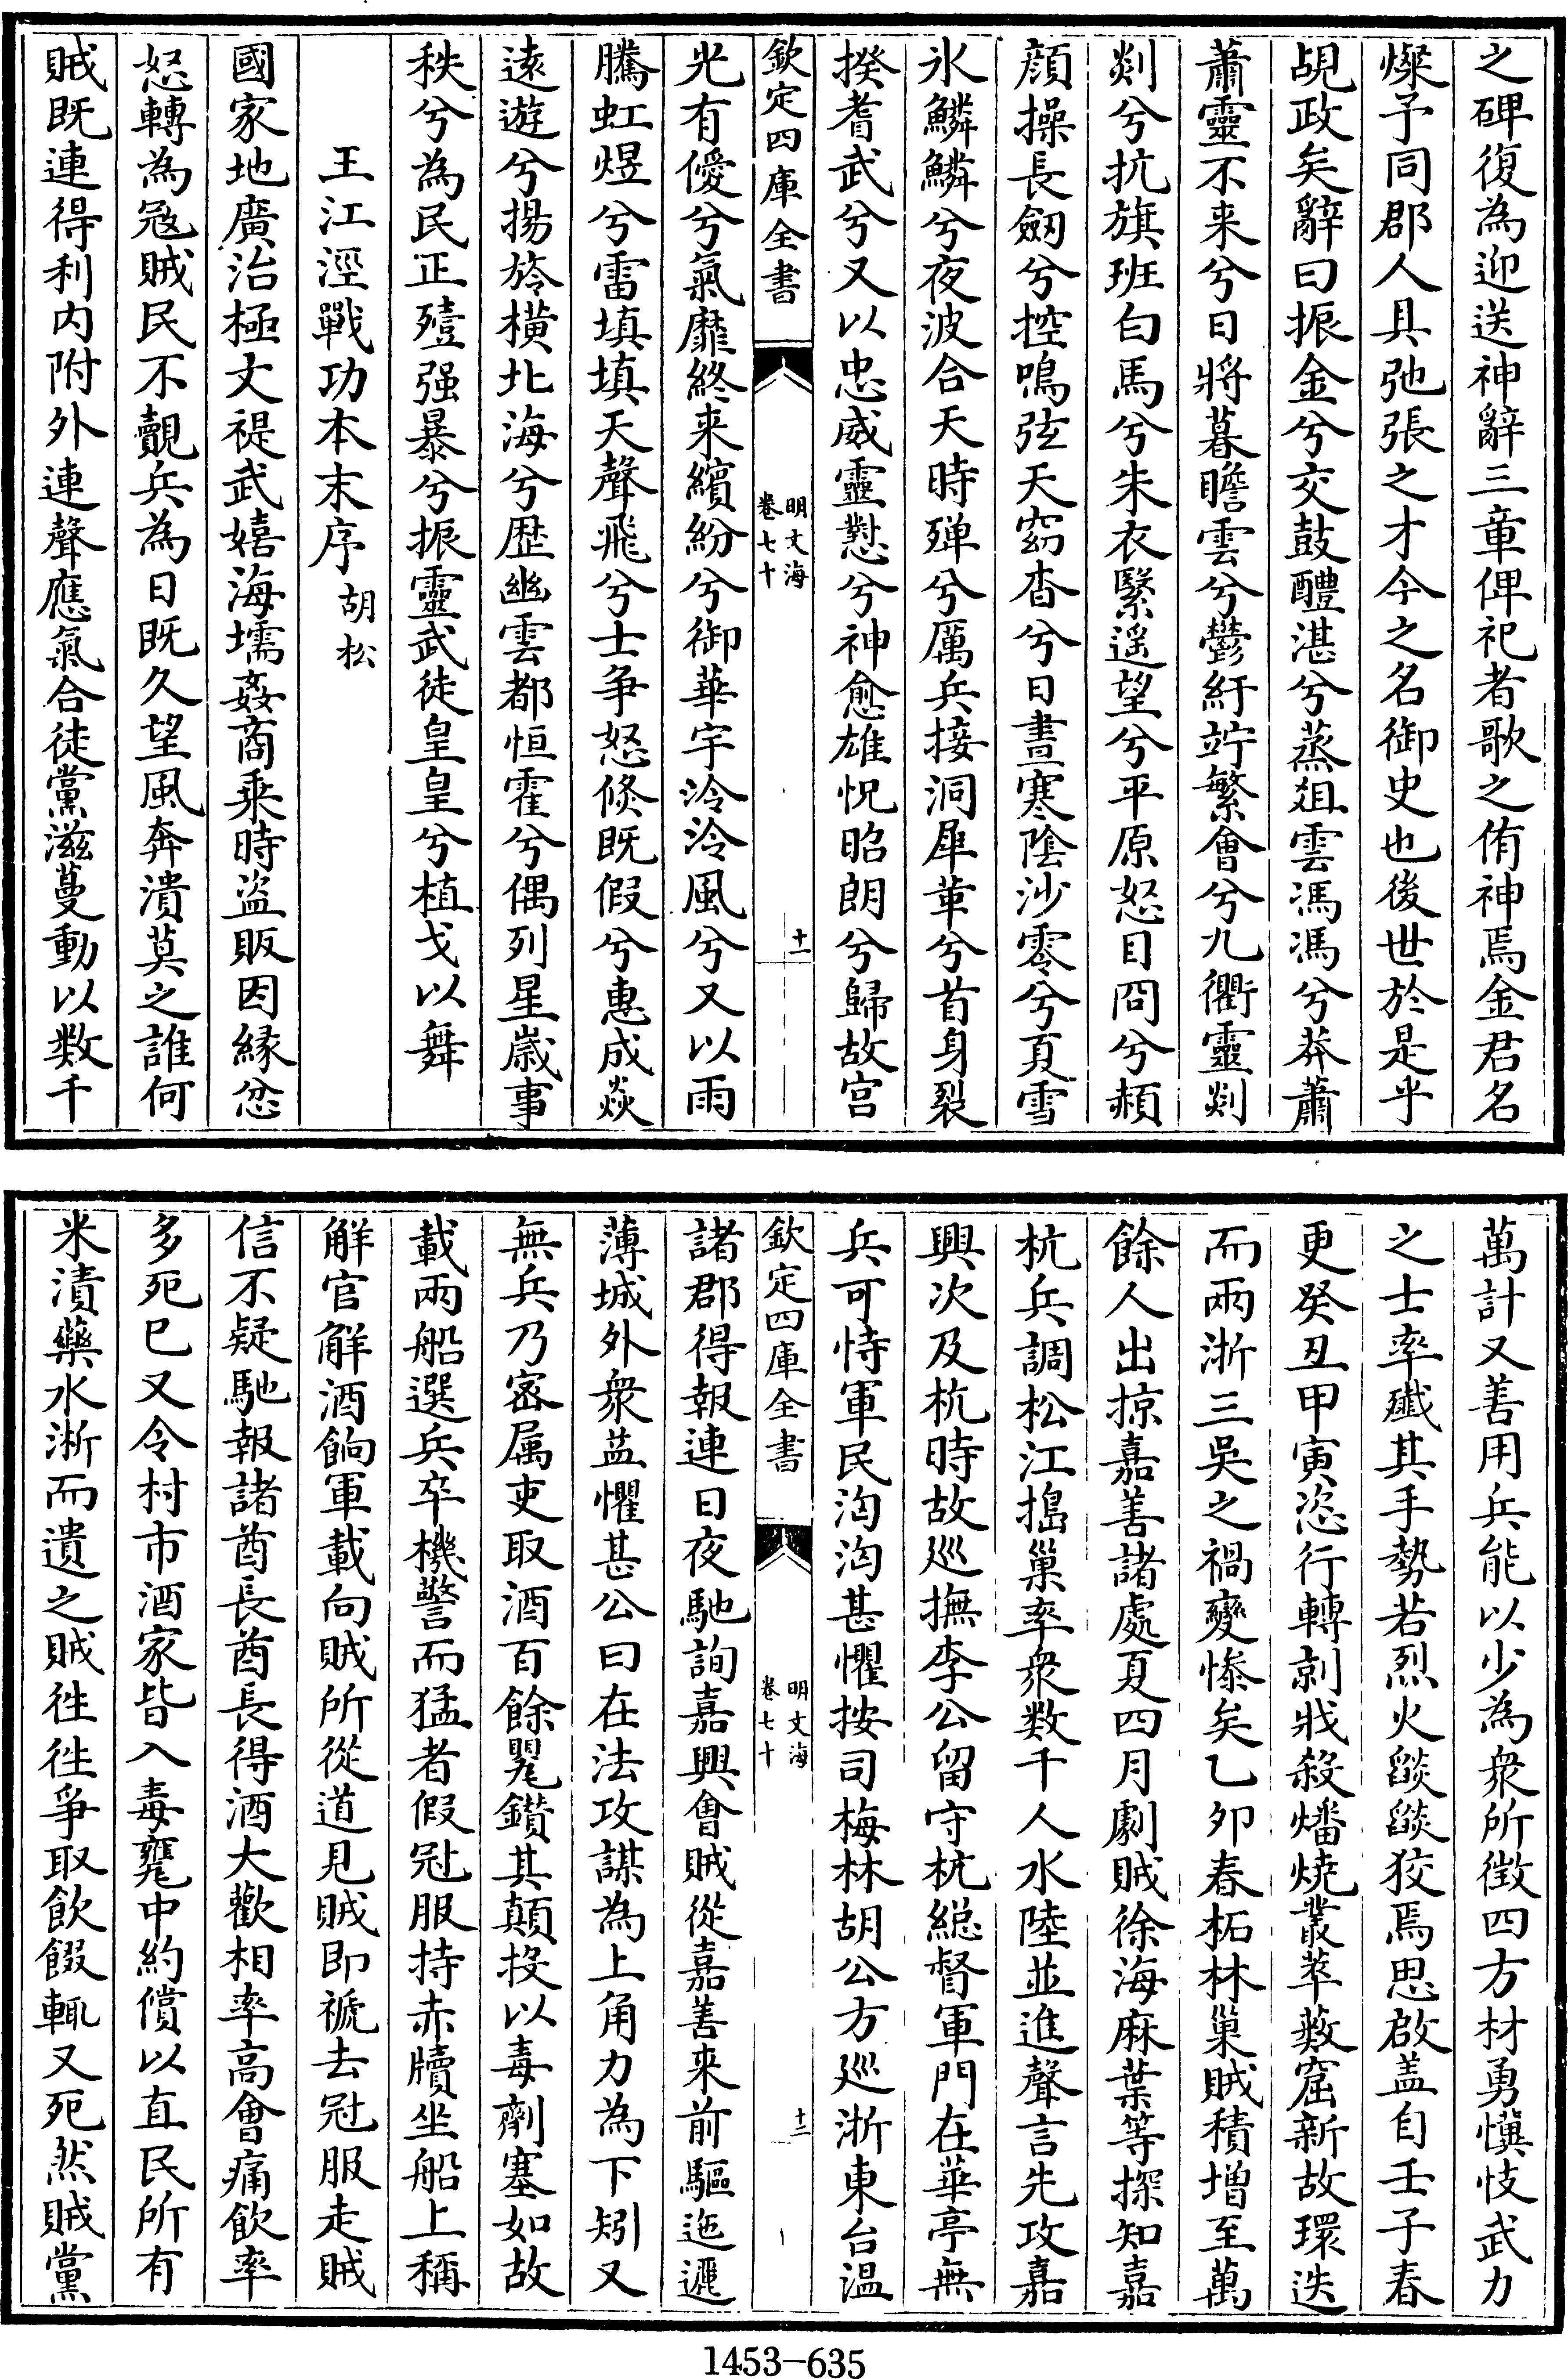 之碑復為迎送神辭三章俾祀者歌之侑神焉金君名
燦予同郡人具弛張之才今之名御史也後世於是乎
覘政矣辭曰振金兮交鼓醴湛兮蒸俎雲馮馮兮莽蕭
蕭靈不来兮日將暮瞻雲兮鬱紆竚繁會兮九衢靈剡
剡兮抗旗班白馬兮朱衣繄遥望兮平原怒目冏兮頳
顔操長劔兮控鳴弦天窈杳兮日晝寒陰沙零兮夏雪
氷鱗鱗兮夜波合天時殫兮厲兵接洞犀革兮首身裂
揆耆武兮又以忠威靈懟兮神愈雄怳昭朗兮歸故宫
欽定四庫全書
明文海
卷七十
十一
光有優兮氣靡終来繽紛兮御華宇泠泠風兮又以雨
騰虹煜兮雷填填天聲飛兮士争怒倏既假兮惠成焱
遠遊兮揚旍横北海兮歴幽雲都恒霍兮偶列星嵗事
秩兮為民正殪强暴兮振靈武徒皇皇兮植戈以舞
王江涇戰功本末序 胡松
國家地廣治極文禔武嬉海壖姦商乘時盗販因縁忿
怒轉為冦賊民不覿兵為日既久望風奔潰莫之誰何
賊既連得利内附外連聲應氣合徒黨滋蔓動以数千
萬計又善用兵能以少為衆所徴四方材勇懻忮武力
之士率殱其手勢若烈火燄燄狡焉思啟盖自壬子春
更癸丑甲寅恣行轉剽戕殺燔焼叢萃藪窟新故環迭
而兩浙三吳之禍變惨矣乙夘春柘林巢賊積増至萬
餘人出掠嘉善諸處夏四月劇賊徐海麻葉等探知嘉
杭兵調松江搗巢率衆数千人水陸並進聲言先攻嘉
興次及杭時故巡撫李公留守杭總督軍門在華亭無
兵可恃軍民洶洶甚懼按司梅林胡公方巡浙東台温
欽定四庫全書
明文海
卷七十
十二
諸郡得報連日夜馳詢嘉興會賊從嘉善来前驅迤邐
薄城外衆益懼甚公曰在法攻謀為上角力為下矧又
無兵乃宻属吏取酒百餘甖鑚其顛投以毒劑塞如故
載兩船選兵卒機警而猛者假冠服持赤牘坐船上稱
觧官觧酒餉軍載向賊所從道見賊即禠去冠服走賊
信不疑馳報諸酋長酋長得酒大歡相率高會痛飲率
多死已又令村市酒家皆入毒甕中約償以直民所有
米漬藥水淅而遺之賊徃徃爭取飲餟輒又死然賊黨
1453-635